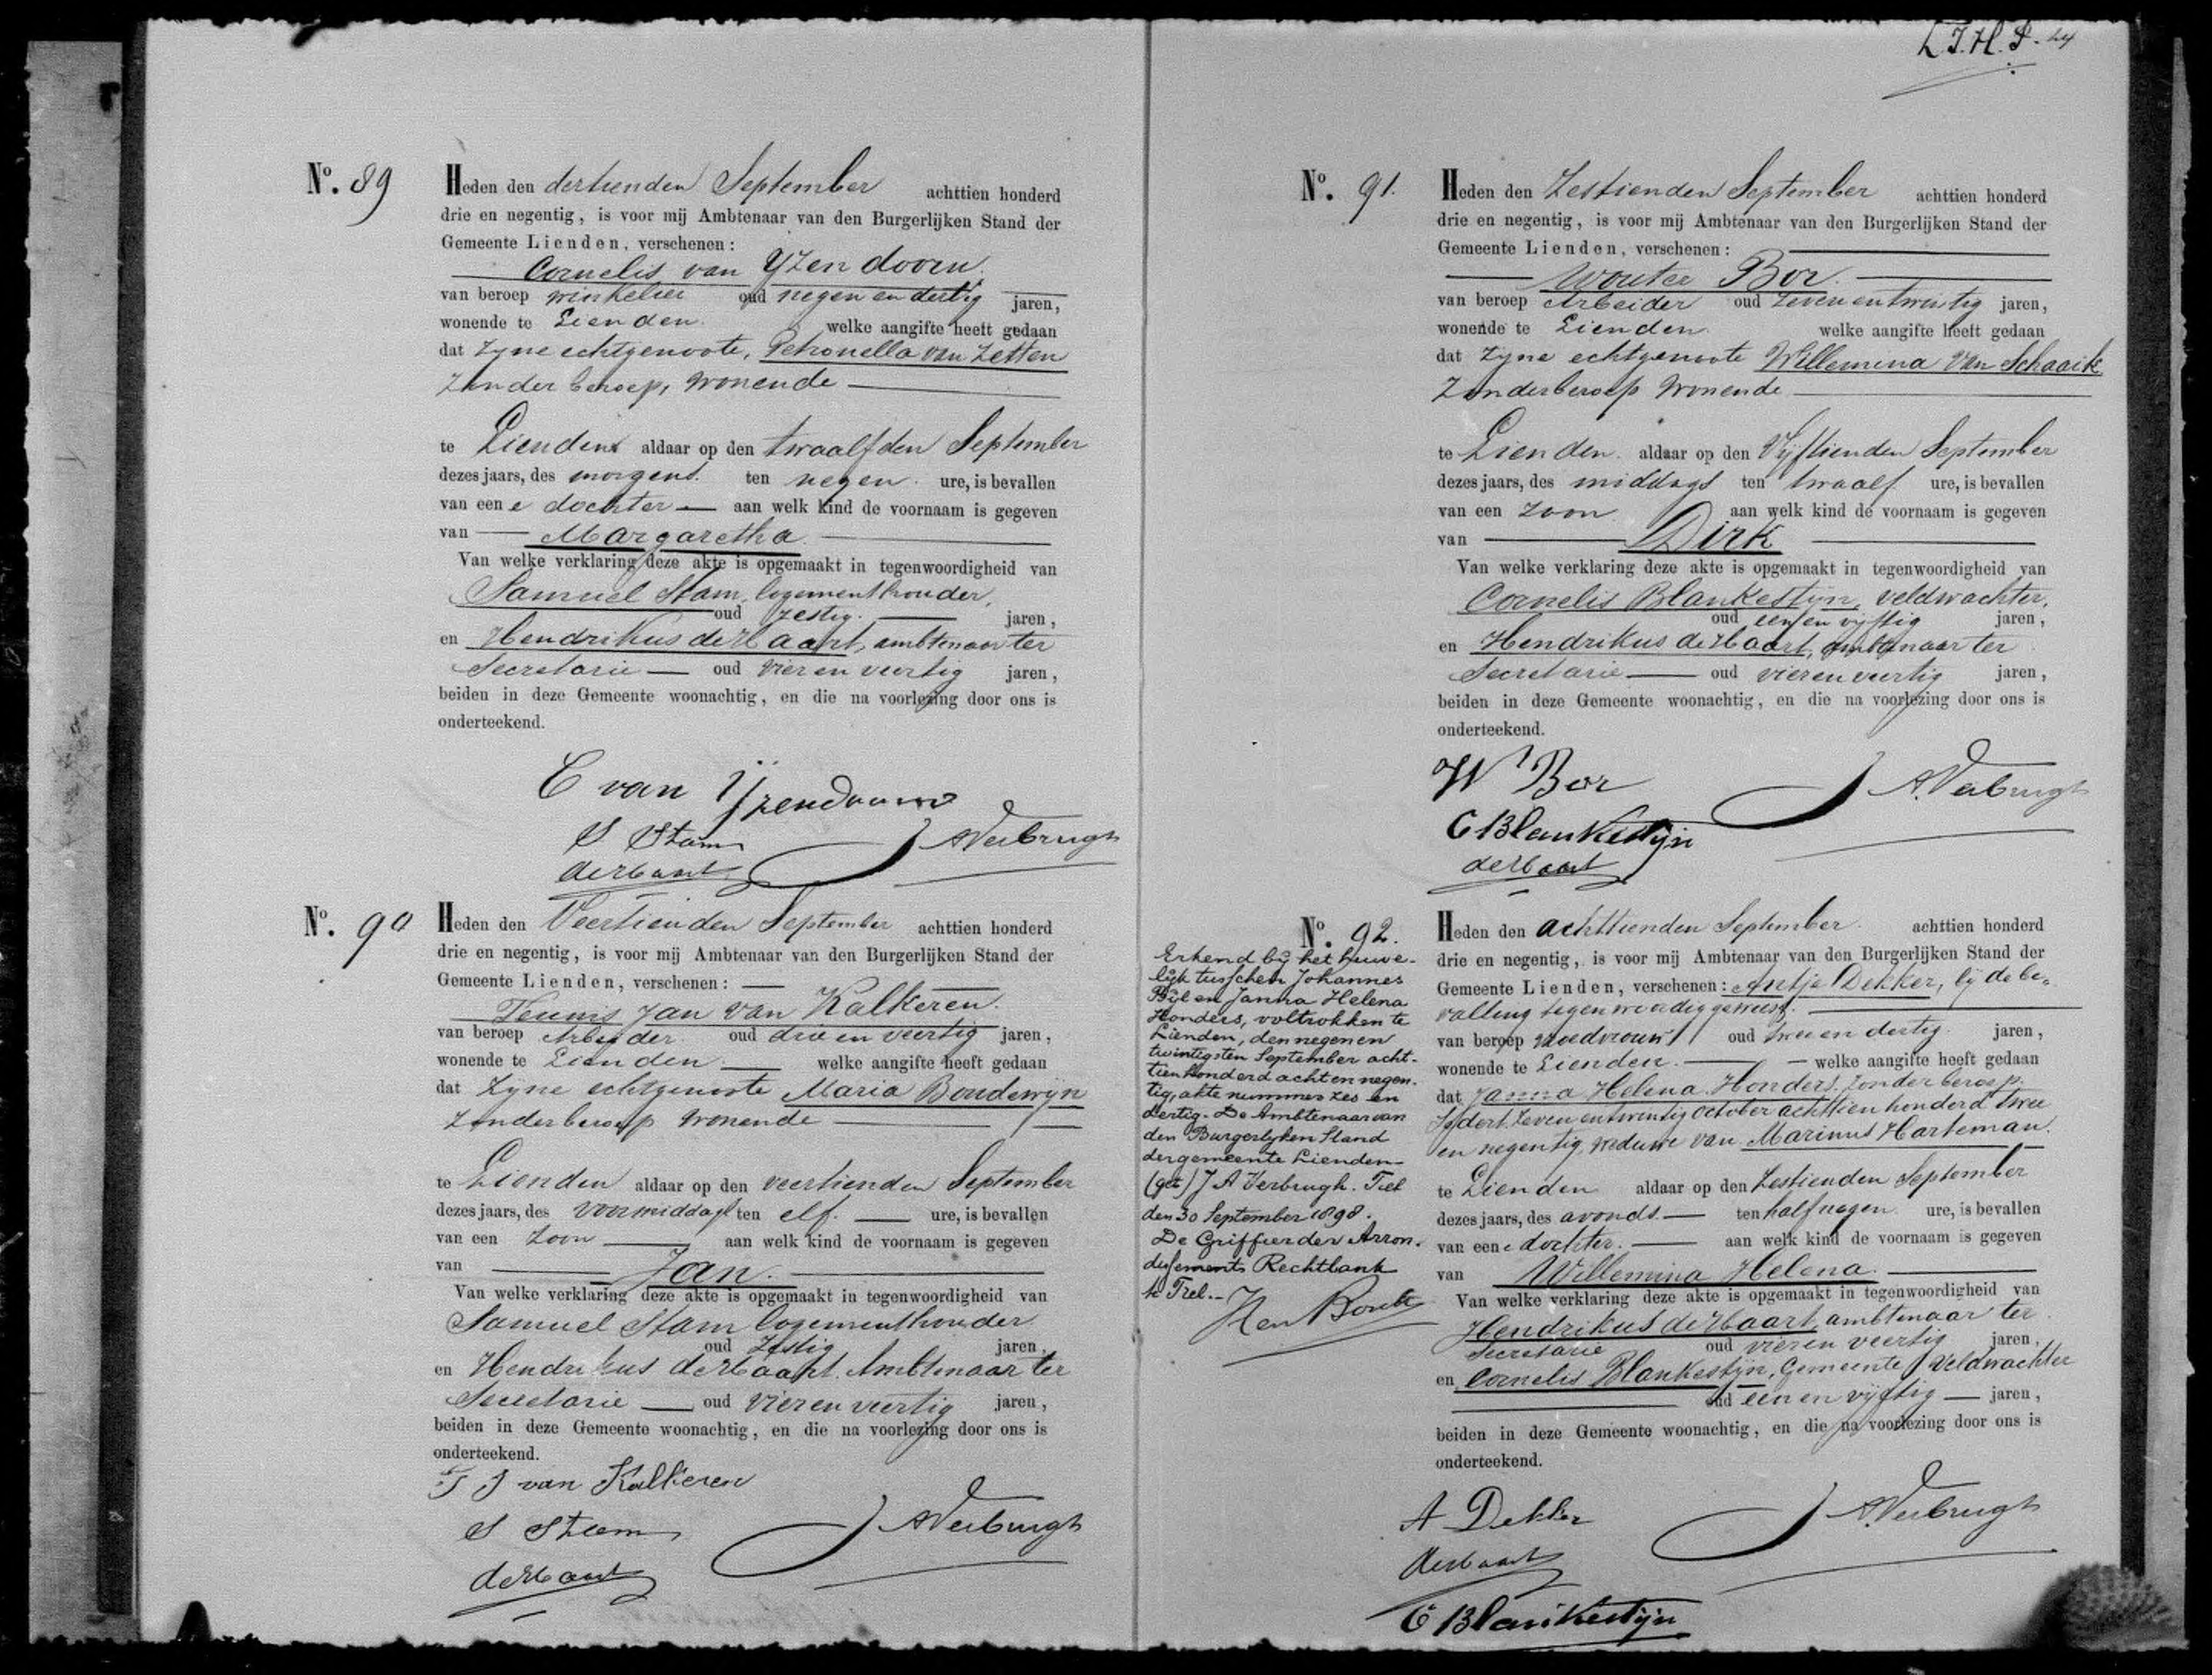 No. 89
Heden den dertienden September achttien honderd
drie en negentig, is voor mij Ambtenaar van den Burgerlijken Stand der
Gemeente Lienden, verschenen:
Cornelis van Yzendoorn
van beroep winkelier oud negen en dertig jaren,
wonende te Lienden welke aangifte heeft gedaan
dat zyne echtgenoote, Petronella van Zetten
zonder beroep, wonende
te Lienden aldaar op den twaalfden September
dezes jaars, des morgens ten negen ure, is bevallen
van eene dochter aan welk kind de voornaam is gegeven
van Margaretha.
Van welke verklaring deze akte is opgemaakt in tegenwoordigheid van
Samuel Stam, logementhouder,
oud zestig jaren,
en Hendrikus de Haart, ambtenaar ter
Secretarie oud vier en veertig jaren,
beiden in deze Gemeente woonachtig, en die na voorlezing door ons is
onderteekend.
C van Ijzendoorn
S Stam
de Haart
JA Verbrugh
No. 90
Heden den Veertienden September achttien honderd
drie en negentig, is voor mij Ambtenaar van den Burgerlijken Stand der
Gemeente Lienden, verschenen:
Teunis Jan van Kalkeren.
van beroep Arbeider oud drie en veertig jaren,
wonende te Lienden welke aangifte heeft gedaan
dat Zyne echtgenoote Maria Boudewijn
Zonder beroep wonende
te Lienden aldaar op den veertienden September
dezes jaars, des voormiddags ten elf. ure, is bevallen
van een zoon aan welk kind de voornaam is gegeven
van Jan.
Van welke verklaring deze akte is opgemaakt in tegenwoordigheid van
Samuel Stam logementhouder
oud Zestig jaren,
en Hendrikus de Haart, Ambtenaar ter
Secretarie oud vier en veertig jaren,
beiden in deze Gemeente woonachtig, en die na voorlezing door ons is
onderteekend.
T J van Kalkeren
S Stam
de Haart
JA Verbrugh
No. 91.
Heden den Zestienden September achttien honderd
drie en negentig, is voor mij Ambtenaar van den Burgerlijken Stand der
Gemeente Lienden, verschenen:
Wouter Bor.
van beroep Arbeider oud zeven en twintig jaren,
wonende te Lienden welke aangifte heeft gedaan
dat Zyne echtgenoote Willemina van Schaaik
Zonder beroep wonende
te Lienden aldaar op den Vijftienden September
dezes jaars, des middags ten twaalf ure, is bevallen
van een zoon aan welk kind de voornaam is gegeven
van Dirk
Van welke verklaring deze akte is opgemaakt in tegenwoordigheid van
Cornelis Blankestijn, veldwachter,
oud een en vijftig jaren,
en Hendrikus de Haart, ambtenaar ter
Secretarie oud vier en veertig jaren,
beiden in deze Gemeente woonachtig, en die na voorlezing door ons is
onderteekend.
W Bor
C Blankestijn
de Haart
JA Verbrugh
No. 92.
Erkend bij het huwe-
lijk tusschen Johannes
Bijl en Janna Helena
Honders, voltrokken te
Lienden, den negen en
twintigsten September acht-
tien honderd acht en negen-
tig, akte nummer zes en
dertig. De Ambtenaar van
den Burgerlyken Stand
der gemeente Lienden
(get) J A Verbrugh. Tiel
den 30 September 1898.
De Griffier der Arron-
dissements Rechtbank
te Tiel.
Heden den achttienden September achttien honderd
drie en negentig, is voor mij Ambtenaar van den Burgerlijken Stand der
Gemeente Lienden, verschenen: Antje Dekker, bij de be-
valling tegenwoordig geweest.
van beroep vroedvrouw oud twee en dertig jaren,
wonende te Lienden welke aangifte heeft gedaan
dat Janna Helena Honders, zonder beroep,
sedert zeven en twintig October achttien honderd twee
en negentig, weduwe van Marinus Harteman.
te Lienden aldaar op den Zestienden September
dezes jaars, des avonds ten half negen ure, is bevallen
van eene dochter. aan welk kind de voornaam is gegeven
van Willemina Helena
Van welke verklaring deze akte is opgemaakt in tegenwoordigheid van
Hendrikus de Haart, ambtenaar ter
Secretarie oud vier en veertig jaren,
en Cornelis Blankestijn, Gemeente Veldwachter
oud een en vijftig jaren,
beiden in deze Gemeente woonachtig, en die na voorlezing door ons is
onderteekend.
A Dekker
de Haart
C Blankestijn
JA Verbrugh